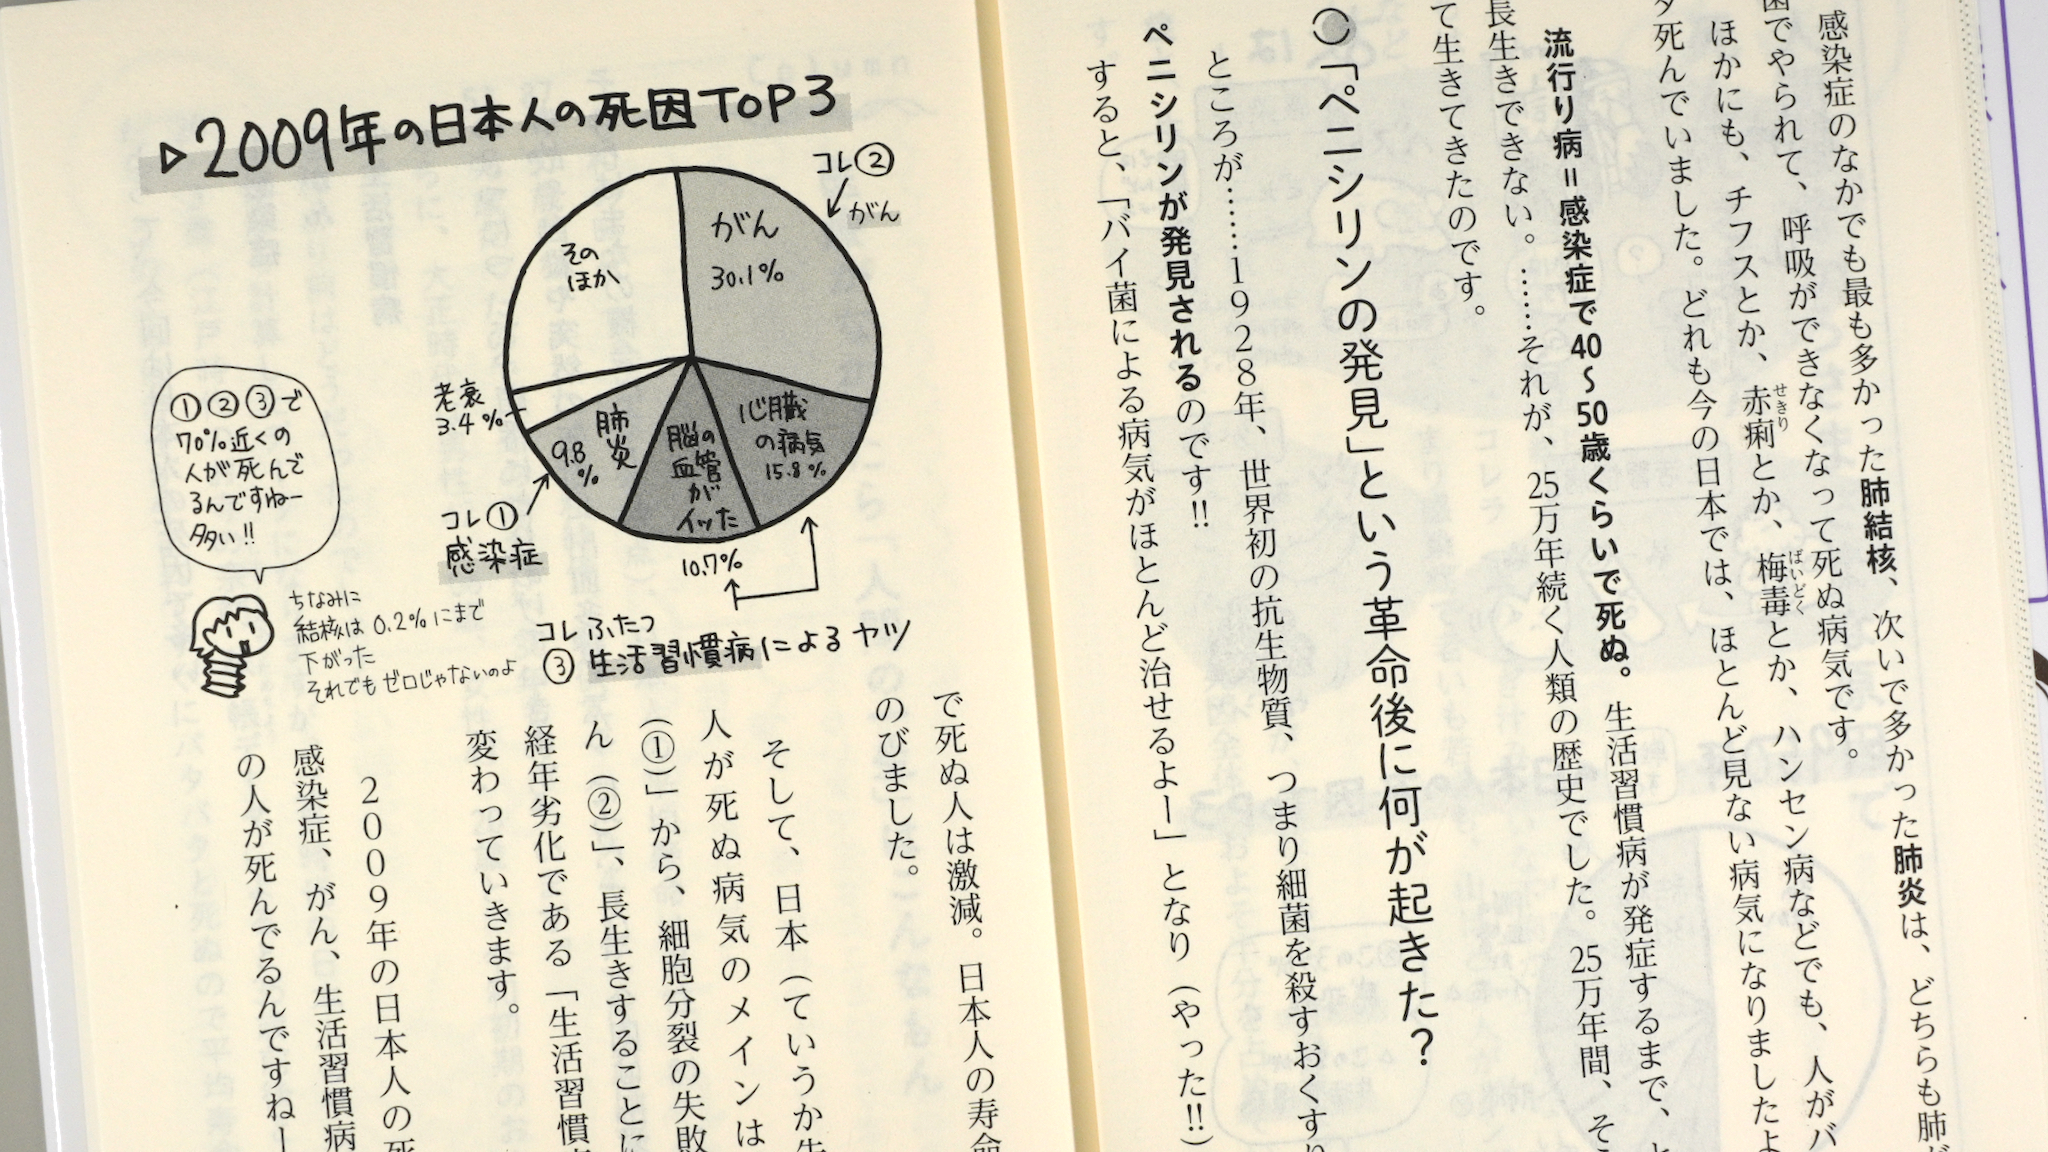 感染症のなかでも最も多かった肺結核、次いで多かった肺炎は、どちらも肺が
菌でやられて、呼吸ができなくなって死ぬ病気です。
ほかにも、チフスとか、赤痢とか、梅毒とか、ハンセン病などでも、人がバ
せきり
ばいどく
タ死んでいました。どれも今の日本では、ほとんど見ない病気になりましたよ
流行り病=感染症で40〜50歳くらいで死ぬ。生活習慣病が発症するまで、と
長生きできない。……それが、25万年続く人類の歴史でした。25万年間、そ
て生きてきたのです。
「ペニシリンの発見」という革命後に何が起きた?
ところが……1928年、世界初の抗生物質、つまり細菌を殺すおくすり
ペニシリンが発見されるのです!!
すると、「バイ菌による病気がほとんど治せるよー」となり(やった!!)
▷2009年の日本人の死因TOP3
コレ②
がん
がん
30.1%
その
ほか
心臓
の病気
15.8%
脳の
血管
が
イッた
10.7%
肺
炎
9.8
%
老衰
3.4%
コレ①
感染症
コレふたつ
③生活習慣病によるヤツ
①②③で
70%近くの
人が死んで
るんですねー
多い!!
ちなみに
結核は0.2%にまで
下がった
それでもゼロじゃないのよ
で死ぬ人は激減。日本人の寿命
のびました。
そして、日本(ていうか先
人が死ぬ病気のメインは
(①)」から、細胞分裂の失敗
ん(②)」、長生きすることに
経年劣化である「生活習慣
変わっていきます。
2009年の日本人の死
感染症、がん、生活習慣病
の人が死んでるんですねー